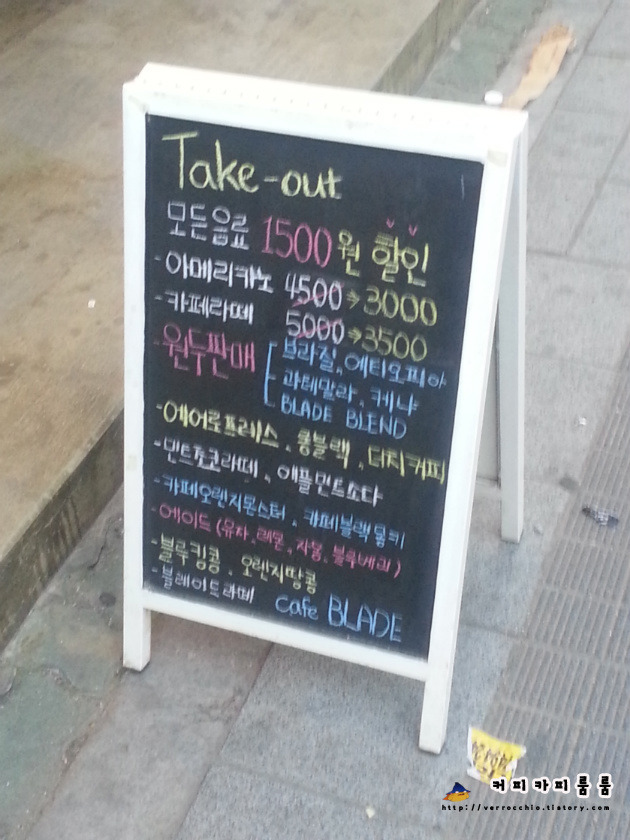 Take-out
모든음료 1500원 할인
- 아메리카노 4500→3000
- 카페라떼 5000→3500
- 원두판매 [ - 브라질, 에티오피아
- 과테말라, 케냐
- BLADE BLEND
- 에어로프레스, 롱블랙, 더치커피
- 민트쵸코라떼, 애플민트소다
- 카페오렌지몬스터, 카페블랙몽키
- 에이드 (유자, 레몬, 자몽, 블루베리)
- 블루킹콩, 오렌지땅콩
- 블레이드라떼
Cafe BLADE
커피카피룸룸
http://verrocchio.tistory.com